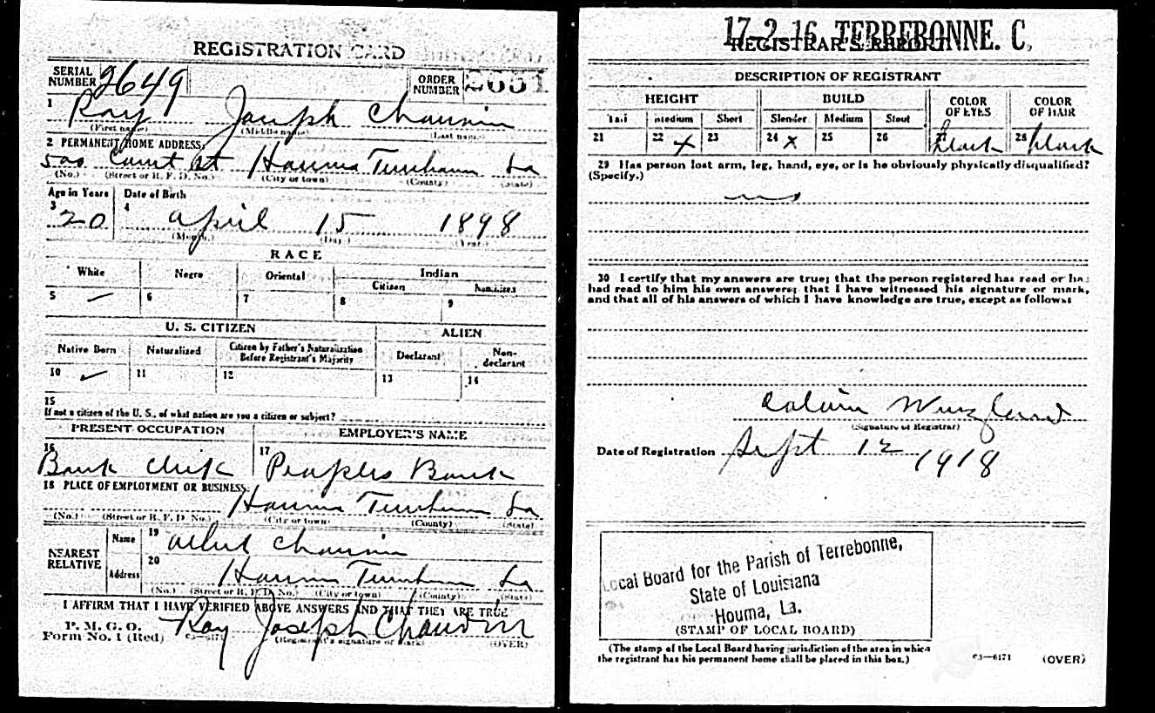 REGISTRATION CARD
SERIAL NUMBER 2649 ORDER NUMBER
1 Ray Joseph Chauvin
(First name) (Middle name) (Last name)
2 PERMANENT HOME ADDRESS:
500 Court St Houma Terrebonne La
(No.) (Street or R. F. D. No.) (City or town) (County) (State)
Age in Years Date of Birth
3 20 4 April 15 1898
(Month.) (Day.) (Year.)
RACE
White Negro Oriental Indian
Citizen Noncitizen
5 6 7 8 9
U. S. CITIZEN ALIEN
Native Born Naturalized Citizen by Father's Naturalization Before Registrant's Majority Declarant Non-declarant
10 11 12 13 14
15
If not a citizen of the U. S., of what nation are you a citizen or subject?
PRESENT OCCUPATION EMPLOYER'S NAME
16 Bank Clerk 17 Peoples Bank
18 PLACE OF EMPLOYMENT OR BUSINESS:
Houma Terrebonne La
(No.) (Street or R. F. D. No.) (City or town) (County) (State)
NEAREST RELATIVE Name 19 Albert Chauvin
Address 20 Houma Terrebonne La
(No.) (Street or R. F. D. No.) (City or town) (County) (State)
I AFFIRM THAT I HAVE VERIFIED ABOVE ANSWERS AND THAT THEY ARE TRUE
P. M. G. O.
Form No. 1 (Red) 03—6171 Ray Joseph Chauvin
(Registrant's signature or mark) (OVER)
17-2-16 TERREBONNE. C,
REGISTRAR'S REPORT
DESCRIPTION OF REGISTRANT
HEIGHT BUILD COLOR OF EYES COLOR OF HAIR
Tall Medium Short Slender Medium Stout
21 22 x 23 24 x 25 26 27 black 28 black
29 Has person lost arm, leg, hand, eye, or is he obviously physically disqualified?
(Specify.)
no
30 I certify that my answers are true; that the person registered has read or has
had read to him his own answers; that I have witnessed his signature or mark,
and that all of his answers of which I have knowledge are true, except as follows:
Calvin
(Signature of Registrar)
Date of Registration Sept 12 1918
Local Board for the Parish of Terrebonne,
State of Louisiana
Houma, La.
(STAMP OF LOCAL BOARD)
(The stamp of the Local Board having jurisdiction of the area in which
the registrant has his permanent home shall be placed in this box.)
03—6171 (OVER)